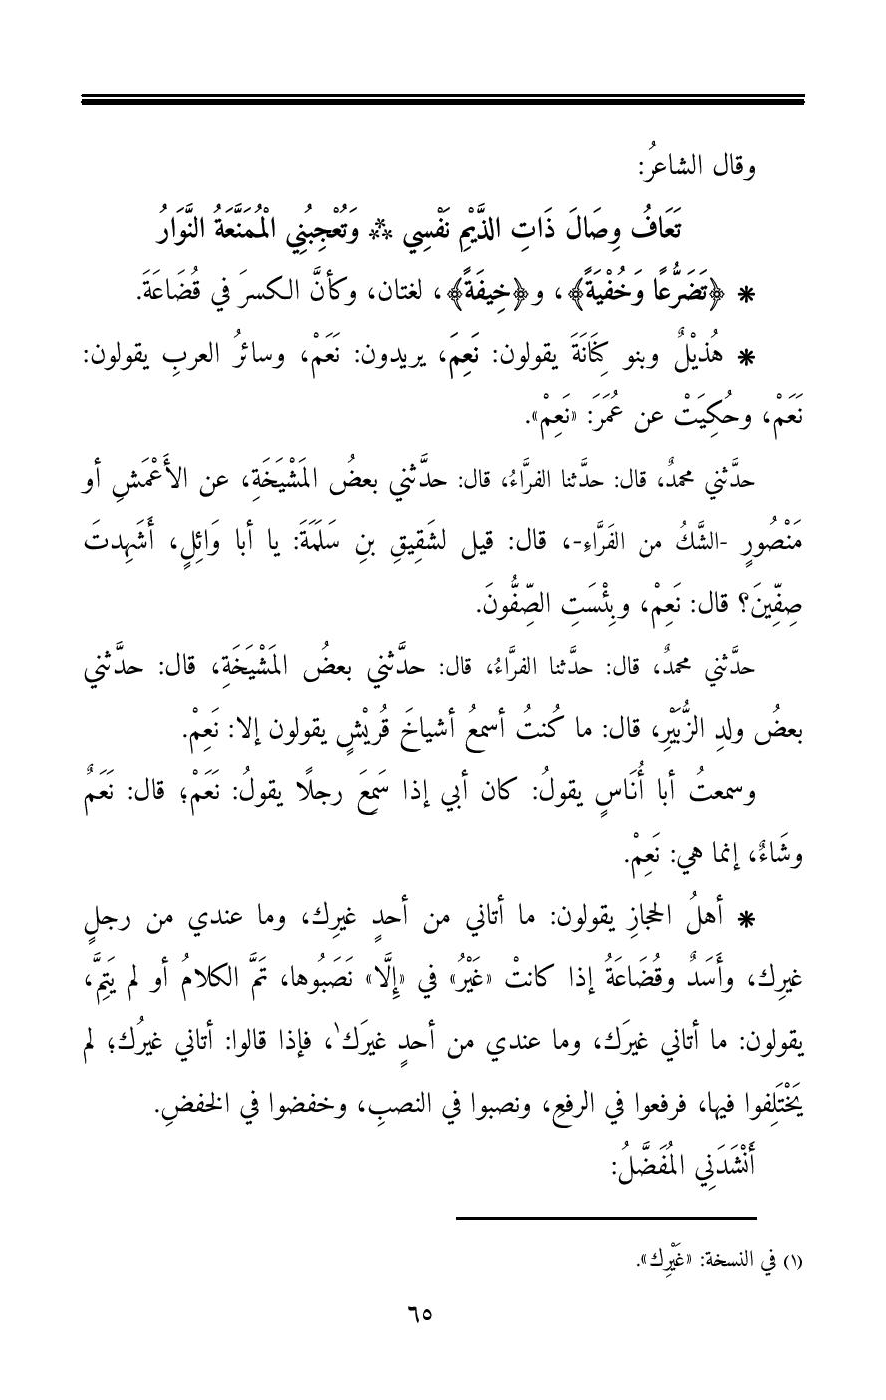 وقال الشاعرُ:
تَعَافُ وِصَالَ ذَاتِ الذَّيْمِ نَفْسِي ⁂ وَتُعْجِبُنِي الْمُمَنَّعَةُ النَّوَارُ
* ﴿تَضَرُّعًا وَخُفْيَةً﴾، و﴿خِيفَةً﴾، لغتان، وكأنَّ الكسرَ في قُضَاعَةَ.
* هُذيْلٌ وبنو كِنَانَةَ يقولون: نَعِمَ، يريدون: نَعَمْ، وسائرُ العربِ يقولون:
نَعَمْ، وحُكِيَتْ عن عُمَرَ: «نَعِمْ».
حدَّثني محمدٌ، قال: حدَّثنا الفرَّاءُ، قال: حدَّثني بعضُ المَشْيَخَةِ، عن الأَعْمَشِ أو
مَنْصُورٍ -الشَّكُ من الفَرَّاءِ-، قال: قيل لشَقِيقِ بنِ سَلَمَةَ: يا أبا وَائِلٍ، أَشَهِدتَ
صِفِّينَ؟ قال: نَعِمْ، وبِئْسَتِ الصِّفُّونَ.
حدَّثني محمدٌ، قال: حدَّثنا الفرَّاءُ، قال: حدَّثني بعضُ المَشْيَخَةِ، قال: حدَّثني
بعضُ ولدِ الزُّبَيْرِ، قال: ما كُنتُ أسمعُ أشياخَ قُريْشٍ يقولون إلا: نَعِمْ.
وسمعتُ أبا أُنَاسٍ يقولُ: كان أبي إذا سَمِعَ رجلًا يقولُ: نَعَمْ؛ قال: نَعَمٌ
وشَاءٌ، إنما هي: نَعِمْ.
* أهلُ الحجازِ يقولون: ما أتاني من أحدٍ غيرِك، وما عندي من رجلٍ
غيرِك، وأَسَدٌ وقُضَاعَةُ إذا كانتْ «غَيْرُ» في «إِلَّا» نَصَبُوها، تَمَّ الكلامُ أو لم يَتِمَّ،
يقولون: ما أتاني غيرَك، وما عندي من أحدٍ غيرَك١، فإذا قالوا: أتاني غيرُك؛ لم
يَخْتَلِفوا فيها، فرفعوا في الرفعِ، ونصبوا في النصبِ، وخفضوا في الخفضِ.
أَنْشَدَنِي المُفَضَّلُ:
(١) في النسخة: «غَيْرِك».
٦٥